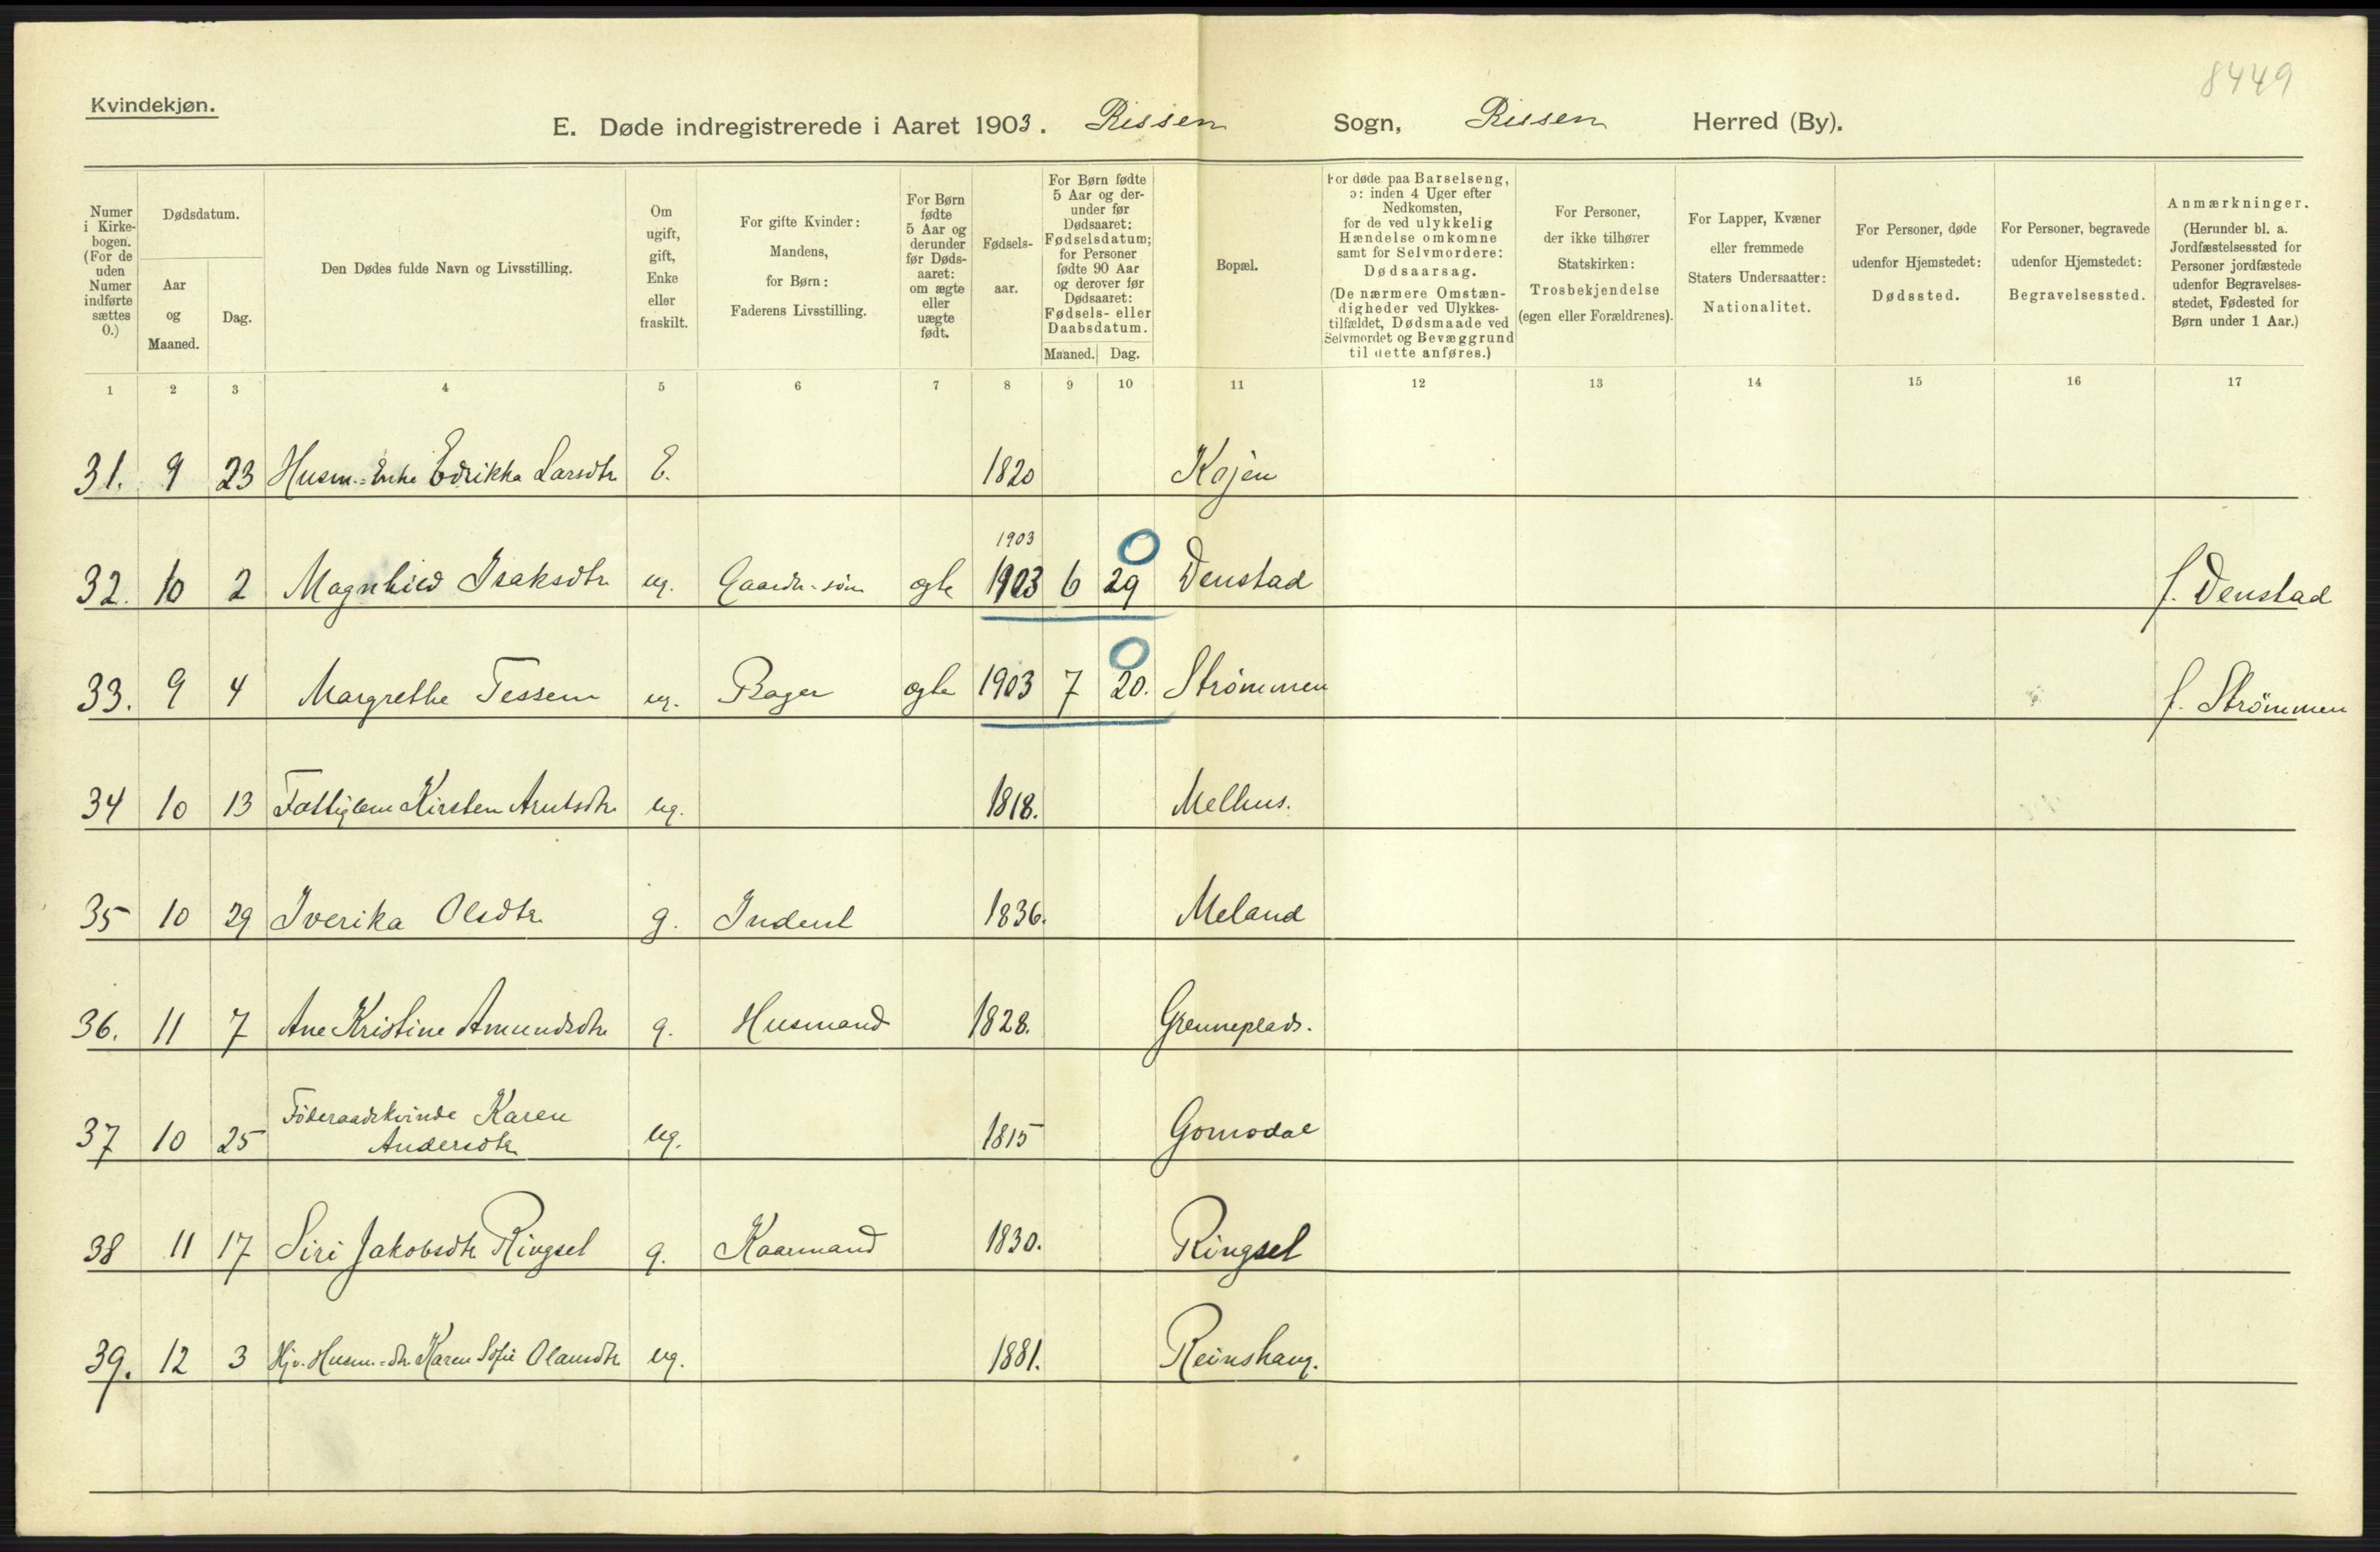 8449
Kvindekjøn.
E. Døde indregistrerede i Aaret 1903. Rissen Sogn, Rissen Herred (By).
Numer i Kirkebogen. (For de uden Numer indførte sættes 0.)
Dødsdatum.
Aar og Maaned.
Dag.
Den Dødes fulde Navn og Livsstilling.
Om ugift, gift, Enke eller fraskilt.
For gifte Kvinder: Mandens, for Børn: Faderens Livsstilling.
For Børn fødte 5 Aar og derunder før Dødsaaret: om ægte eller uægte født.
Fødselsaar.
For Børn fødte 5 Aar og derunder før Dødsaaret: Fødselsdatum; for Personer fødte 90 Aar og derover før Dødsaaret: Fødsels- eller Daabsdatum.
Maaned. Dag.
Bopæl.
For døde paa Barselseng, ɔ: inden 4 Uger efter Nedkomsten, for de ved ulykkelig Hændelse omkomne samt for Selvmordere: Dødsaarsag. (De nærmere Omstændigheder ved Ulykkestilfældet, Dødsmaade ved Selvmordet og Bevæggrund til dette anføres.)
For Personer, der ikke tilhører Statskirken: Trosbekjendelse (egen eller Forældrenes).
For Lapper, Kvæner eller fremmede Staters Undersaatter: Nationalitet.
For Personer, døde udenfor Hjemstedet: Dødssted.
For Personer, begravede udenfor Hjemstedet: Begravelsessted.
Anmærkninger. (Herunder bl. a. Jordfæstelsessted for Personer jordfæstede udenfor Begravelsesstedet, Fødested for Børn under 1 Aar.)
1 2 3 4 5 6 7 8 9 10 11 12 13 14 15 16 17
31. 9 23 Husm.=Enke Edrikka Larsdtr E. 1820 Kojen
1903 0
32. 10 2 Magnhild Isaksdtr ug. Gaardr-søn egte 1903 6 29 Denstad f. Denstad
0
33. 9 4 Margrethe Tessem ug. Bager egte 1903 7 20. Strømmen f. Strømmen
34 10 13 Fattiglem Kirsten Arntsdtr ug. 1818. Melhus.
35 10 29 Iverika Olsdtr g. Inderst 1836. Meland
36. 11 7 Ane Kristine Amundsdtr g. Husmand 1828. Grenneplads.
37 10 25 Föderaadskvinde Karen
Andersdtr ug. 1815 Gomodal
38 11 17 Siri Jakobsdtr Ringsel g. Kaarmand 1830. Ringsel
39. 12 3 Hjv. Husm.=dtr Karen Sofie Olausdtr ug. 1881. Reinshaug.